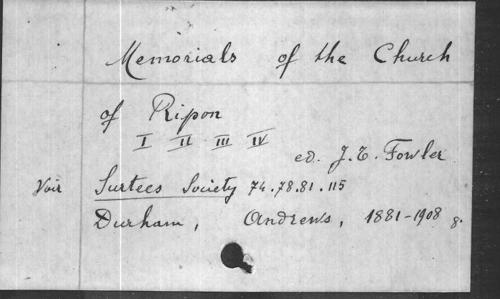 Memorials of the Church
of Ripon
I II III IV
ed. J. T. Fowler
Voir Surtees Society 74.78.81.115
Durham, Andrews, 1881-1908 8.